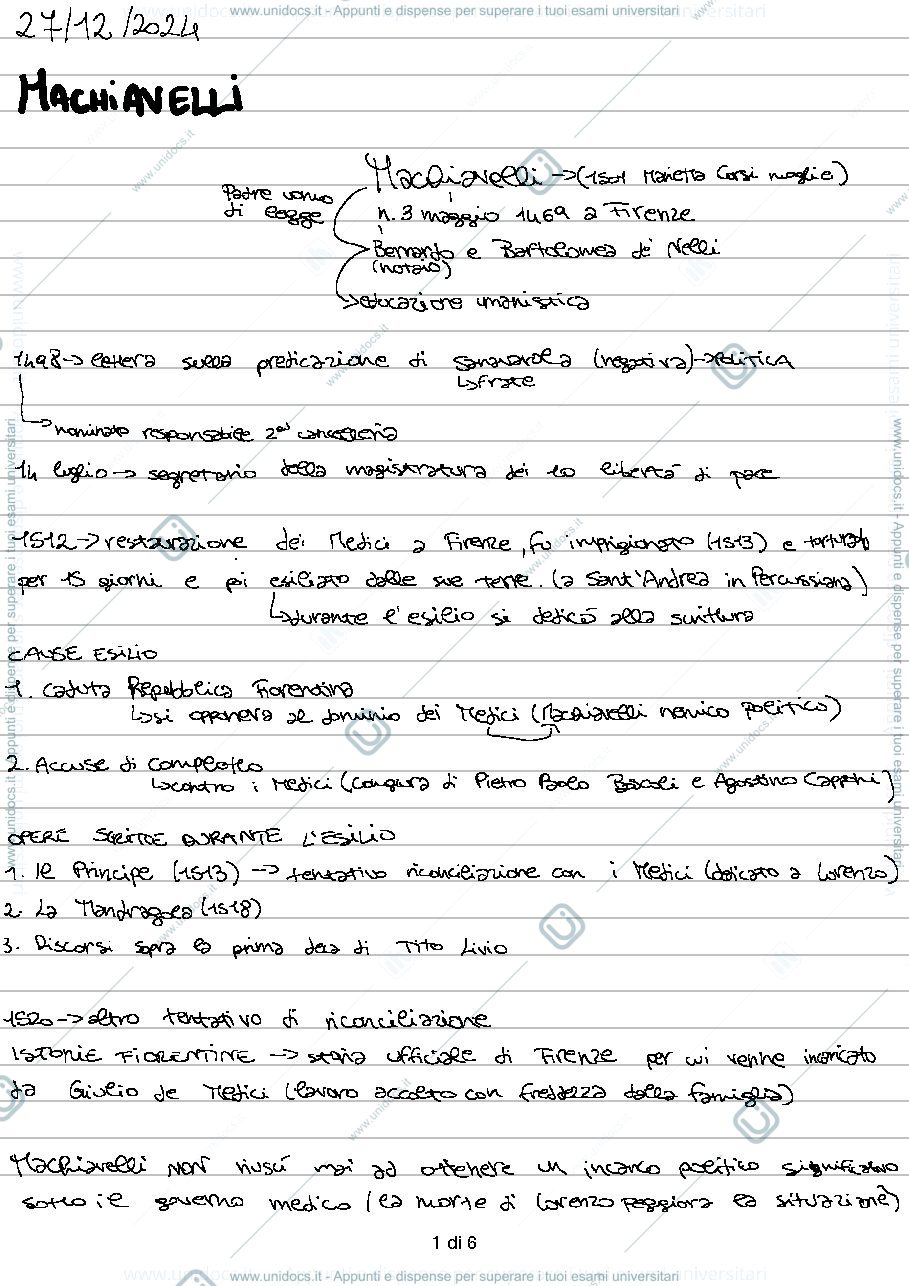 www.unidocs.it - Appunti e dispense per superare i tuoi esami universitari
27/12/2024
MACHIAVELLI
Machiavelli -> (1501 Marietta Corsi moglie)
Padre uomo
di legge
n. 3 maggio 1469 a Firenze
Bernardo e Bartolomea de' Nelli
(notaio)
-> educazione umanistica
1498 -> lettera sulla predicazione di Savonarola (negativa) -> politica
↳ frate
-> nominato responsabile 2ª cancelleria
14 luglio -> segretario della magistratura dei 10 libertà di pace
1512 -> restaurazione dei Medici a Firenze, fu imprigionato (1513) e torturato
per 15 giorni e poi esiliato dalle sue terre. (a Sant'Andrea in Percussiona)
↳ durante l'esilio si dedicò alla scrittura
CAUSE ESILIO
1. Caduta Repubblica Fiorentina
↳ si opponeva al dominio dei Medici (Machiavelli nemico politico)
2. Accuse di complotto
↳ contro i Medici (Congiura di Pietro Paolo Boscoli e Agostino Capponi)
OPERE SCRITTE DURANTE L'ESILIO
1. Il Principe (1513) -> tentativo riconciliazione con i Medici (dedicato a Lorenzo)
2. La Mandragola (1518)
3. Discorsi sopra la prima deca di Tito Livio
1520 -> altro tentativo di riconciliazione
ISTORIE FIORENTINE -> storia ufficiale di Firenze per cui venne incaricato
da Giulio de Medici (lavoro accolto con freddezza dalla famiglia)
Machiavelli NON riuscì mai ad ottenere un incarico politico significativo
sotto il governo medico (la morte di Lorenzo peggiora la situazione)
1 di 6
www.unidocs.it - Appunti e dispense per superare i tuoi esami universitari